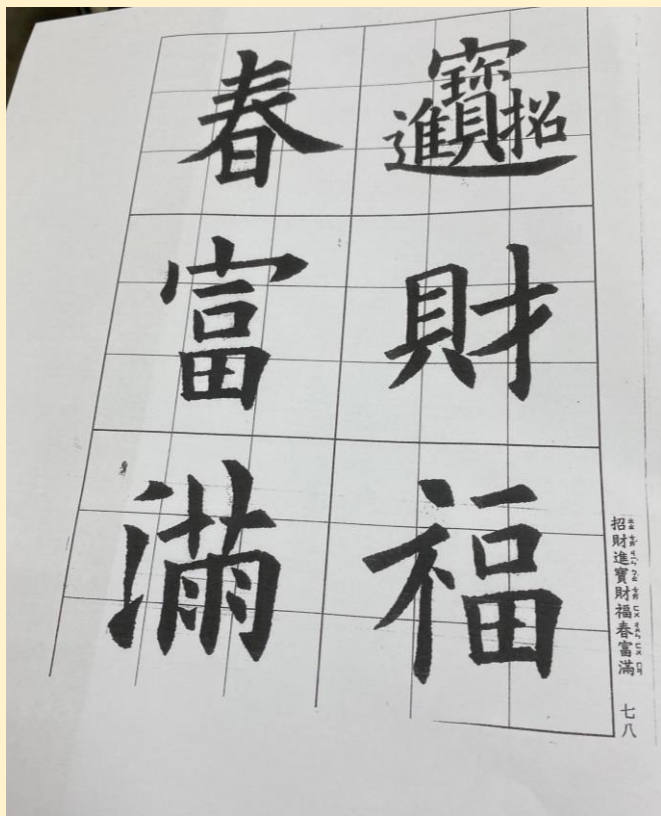 招財進寶
財
福
春
富
滿
招財進寶財福春富滿 七八